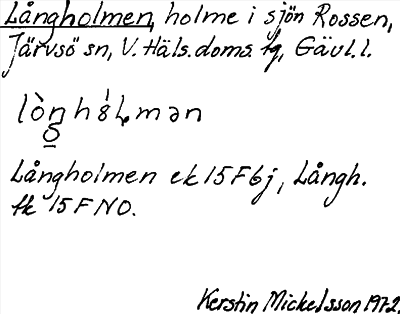 Långholmen, holme i sjön Rossen,
Järvsö sn, V. Häls. doms. tg, Gävl. l.
Långholmen ek 15 F 6j, Långh.
tk 15 F NO.
Kerstin Mickelsson 1972.